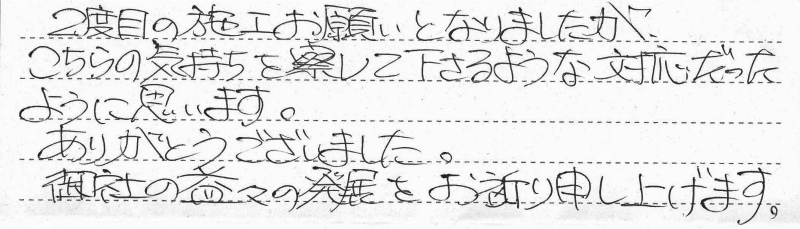 2度目の施工お願いとなりましたが、
こちらの気持ちを察して下さるような対応だった
ように思います。
ありがとうございました。
御社の益々の発展をお祈り申し上げます。